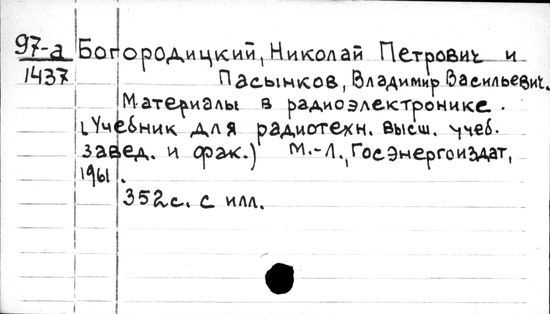 97-а Богородицкий, Николай Петрович и
1437 Пасынков, Владимир Васильевич.
Материалы в радиоэлектронике.
(Учебник для радиотехн. высш. учеб.
завед. и фак.) М.-Л., Госэнергоиздат,
1961.
352с. с илл.